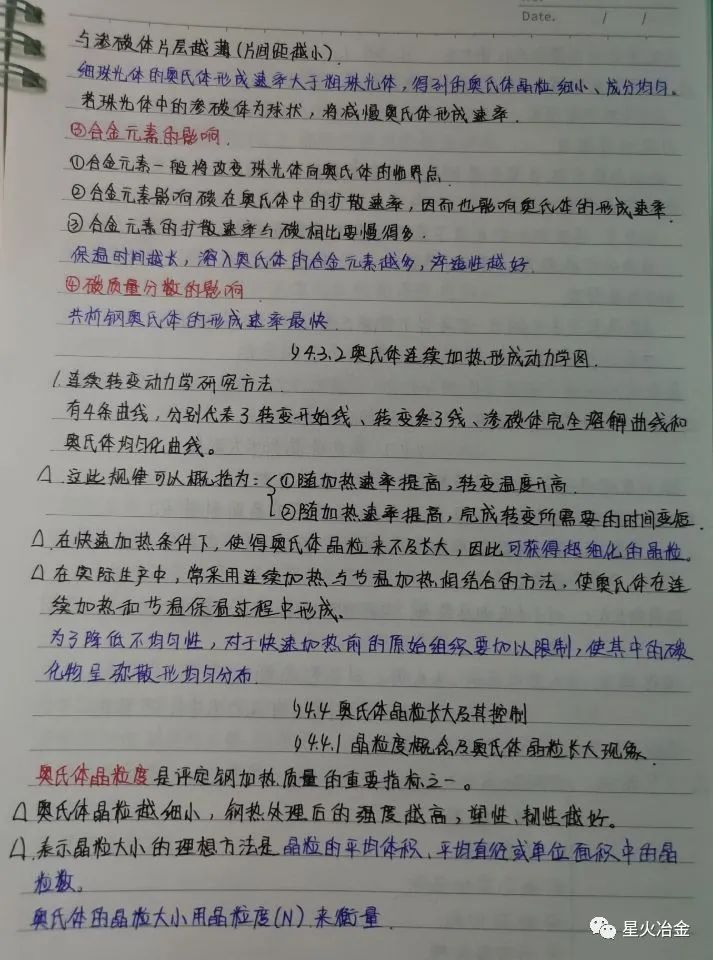 No.
Date. / /
与渗碳体片层越薄(片间距越小).
细珠光体的奥氏体形成速率大于粗珠光体,得到的奥氏体晶粒细小、成分均匀。
若珠光体中的渗碳体为球状,将减慢奥氏体形成速率.
③合金元素的影响.
①合金元素一般将改变珠光体向奥氏体的临界点.
②合金元素影响碳在奥氏体中的扩散速率,因而也影响奥氏体的形成速率.
③合金元素的扩散速率与碳相比要慢得多.
保温时间越长,溶入奥氏体的合金元素越多,淬透性越好.
④碳质量分数的影响
共析钢奥氏体的形成速率最快.
§4.3.2奥氏体连续加热形成动力学图.
1.连续转变动力学研究方法.
有4条曲线,分别代表了转变开始线、转变终了线、渗碳体完全溶解曲线和
奥氏体均匀化曲线。
△ 这此规律可以概括为:①随加热速率提高,转变温度升高.
②随加热速率提高,完成转变所需要的时间变短.
△.在快速加热条件下,使得奥氏体晶粒来不及长大,因此可获得超细化的晶粒。
△在实际生产中,常采用连续加热与节温加热相结合的方法,使奥氏体在连
续加热和节温保温过程中形成。
为了降低不均匀性,对于快速加热前的原始组织要加以限制,使其中的碳
化物呈弥散形均匀分布.
§4.4 奥氏体晶粒长大及其控制
§4.4.1 晶粒度概念及奥氏体晶粒长大现象.
奥氏体晶粒度是评定钢加热质量的重要指标之一。
△ 奥氏体晶粒越细小,钢热处理后的强度越高,塑性、韧性越好。
△.表示晶粒大小的理想方法是晶粒的平均体积、平均直径或单位面积中的晶
粒数。
奥氏体的晶粒大小用晶粒度(N)来衡量.
星火冶金